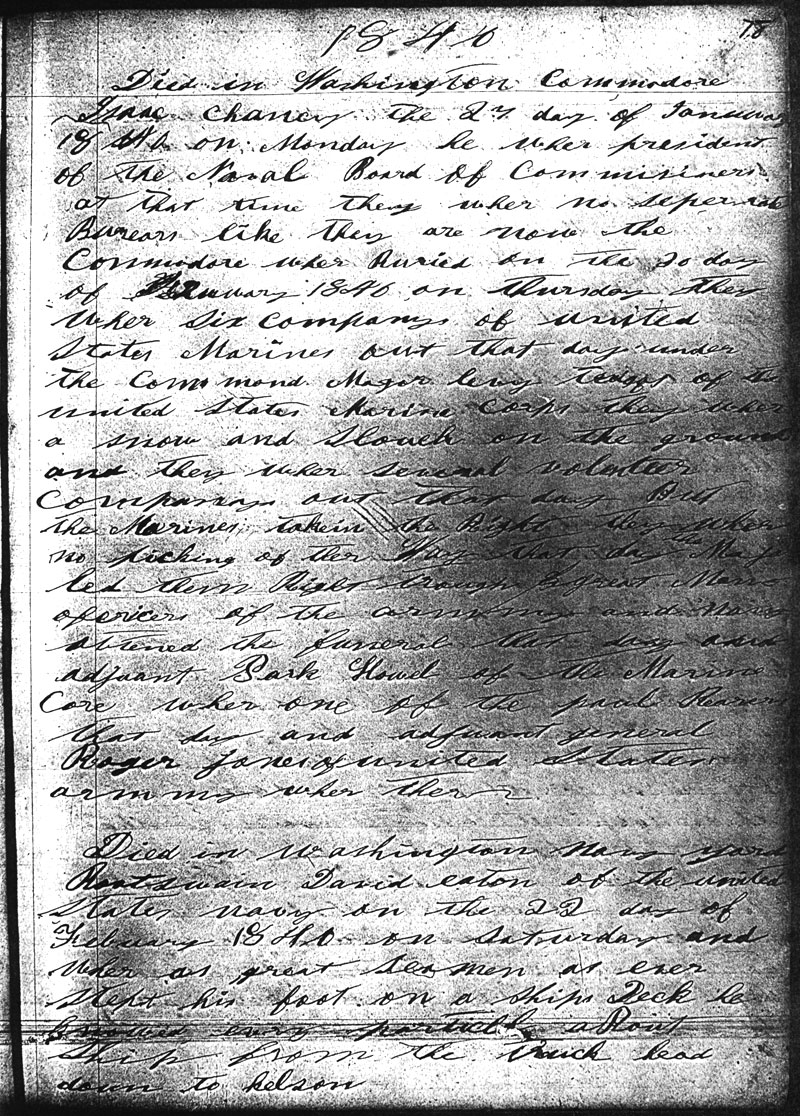 1840
78
Died in Washington Commodore
Isaac Chancy the 27 day of January
1840 on Monday he wher president
of the Naval Board of Commisiners
at that time they wher no seperate
Burears like they are now the
Commodore wher Buried on the 30 day
of January 1840 on thursday they
wher six companys of united
States Marines out that day under
the Command Mager levy twiggs of the
united States Marine Corps they wher
a snow and slouch on the ground
and they wher several volenteer
Companays out that day But
the Marines taken the Right they wher
no of ther Way that day the Major
led them Right trough great Many
oficers of the armmy and Navy
attened the funeral that day and
adjuant Park Howel of the Marine
Core wher one of the paul Rearers
that day and adjuant general
Roger jones of united States
armmy wher ther
Died in Washington Navy yard
Boatswain David eaton of the united
States navy on the 22 day of
Febuary 1840 on Saturday and
wher as great Seamen as ever
stept his foot on a ships Deck he
knowed evry particlle aBout
Ship from the truck head
down to kelson